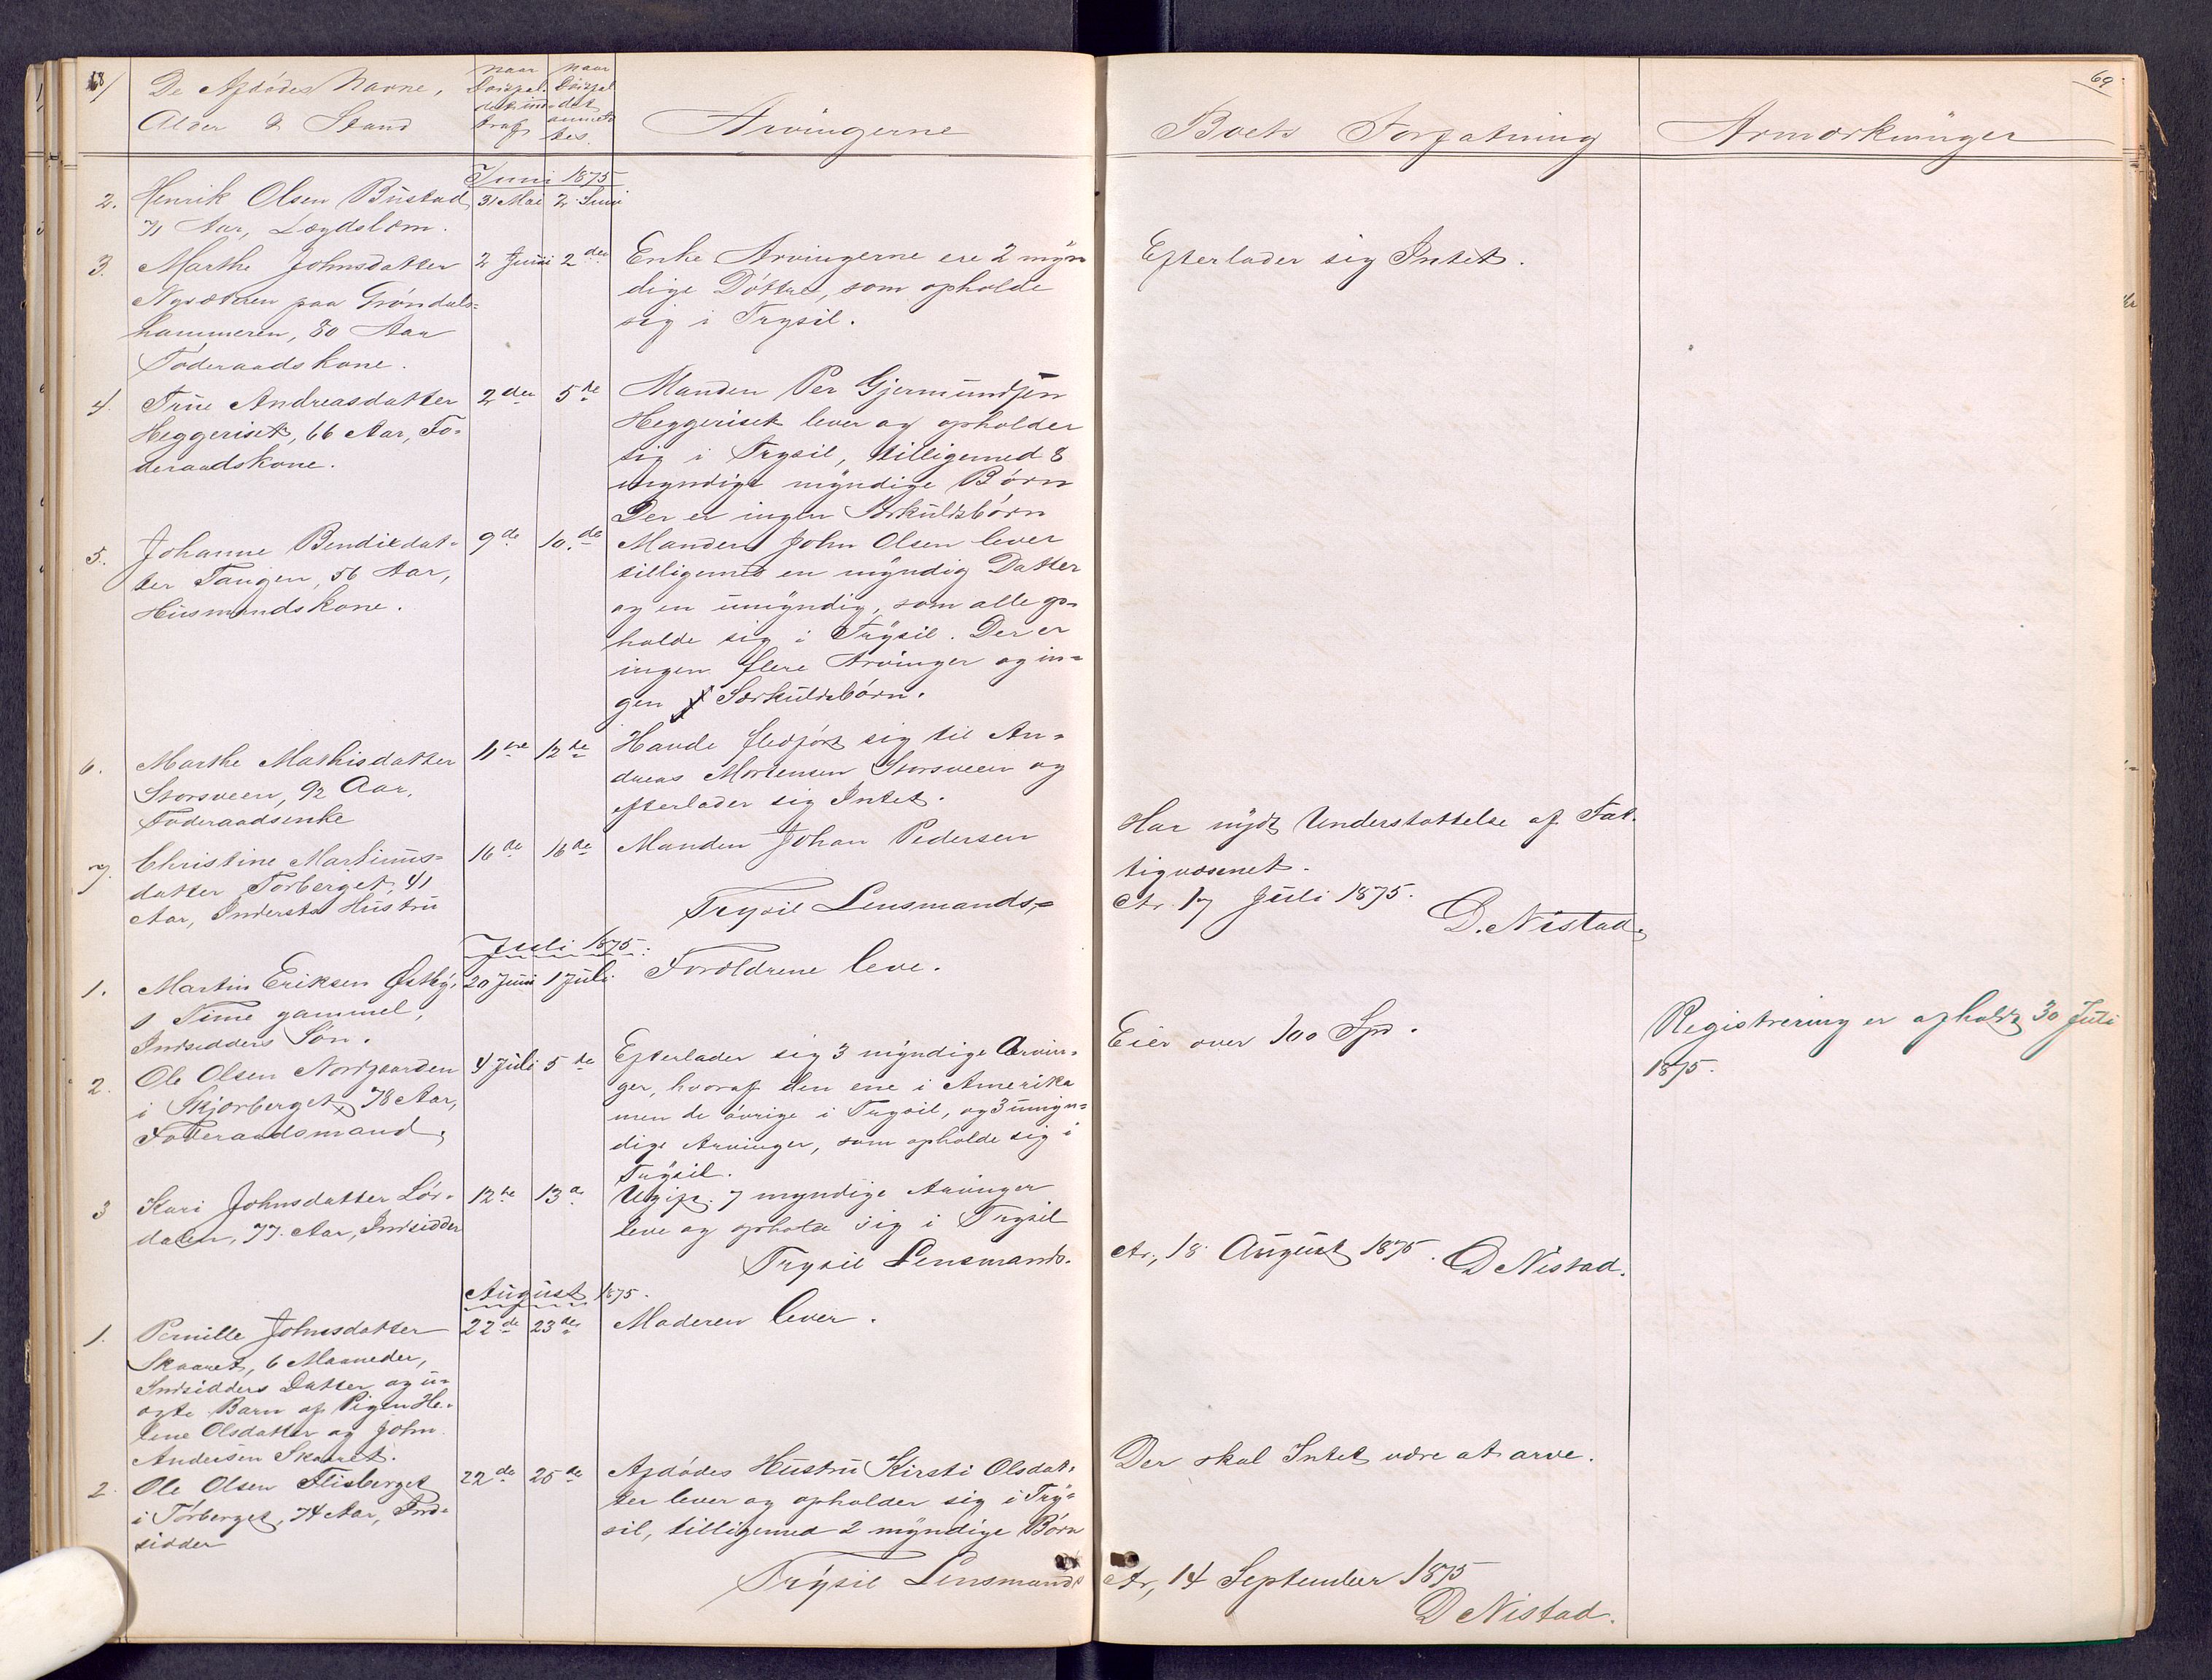 68/
De Afdødes Navne,
Alder & Stand
naar
Døisfal
det ind-
traf
naar
Døisfal
det
anmeld
tes.
Arvingerne
Juni 1875
2. Henrik Olsen Bustad 31 Mai 2 Juni
71 Aar, Lægdslem.
3. Marthe Johnsdatter 2 Juni 2den Enke Arvingerne ere 2 myn
Nysæteren paa Grøndals= dige Døttre, som opholde
hammeren, 80 Aar sig i Trysil.
Føderaadskone.
4. Trine Andreasdatter 2den 5te Manden Per Gjermundsen
Heggeriset, 66 Aar, Fø= Heggeriset lever og opholder
deraadskone. sig i Trysil, tilligemed 8
myndige Børn
Der er ingen Særkuldsbørn
5. Johanne Bendixdat= 9de 10.de Manden John Olsen lever
ter Tangen, 56 Aar, tilligemed en myndig Datter
Husmandskone. og en umyndig, som alle op=
holde sig i Trysil. Der er
ingen flere Arvinger og in=
gen Særkuldsbørn.
6. Marthe Mathisdatter 11te 12te Havde fledført sig til An=
Storsveen, 92 Aar, dreas Mortensen Storsveen og
Føderaadsenke efterlader sig Intet.
7. Christine Martinus= 16de 16de Manden Johan Pedersen
datter Torberget, 41
Aar, Indersts Hustru
Trysil Lensmands=
Juli 1875.
1. Martin Eriksen Østby, 20 Juni 1 Juli Forældrene leve.
1 Time gammel,
Indsidders Søn.
2. Ole Olsen Nordgaarden 4 Juli 5te Efterlader sig 3 myndige Arvin=
i Skjørberget, 78 Aar, ger, hvoraf den ene i Amerika
Føderaadsmand, men de øvrige i Trysil, og 3 umyn=
dige Arvinger, som opholde sig i
Trysil.
3 Kari Johnsdatter Lør= 12te 13de Ugift. 7 myndige Arvinger
dalen, 77 Aar, Indsidder leve og opholde sig i Trysil
Trysil Lensmands.
August 1875.
1. Pernille Johnsdatter 22de 23de Moderen lever.
Skaaret, 6 Maaneder,
Indsidders Datter og u=
ægte Barn af Pigen He=
lene Olsdatter og John
Andersen Skaaret.
2. Ole Olsen Flisberget 22de 25de Afdødes Hustru Kirsti Olsdat=
i Tørberget, 74 Aar, Ind= ter lever og opholder sig i Try=
sidder sil, tilligemed 2 myndige Børn
Trysil Lensmands
69
Boets Forfatning
Anmærkninger
Efterlader sig Intet.
Har nydt Understøttelse af Fat=
tigvæsenet.
Ar. 17 Juli 1875.
D. Nistad.
Eier over 100 Spd.
Registrering er afholdt 30 Juli
1875.
Ar, 18 August 1875. D Nistad.
Der skal Intet være at arve.
Ar, 14 September 1875
D Nistad.